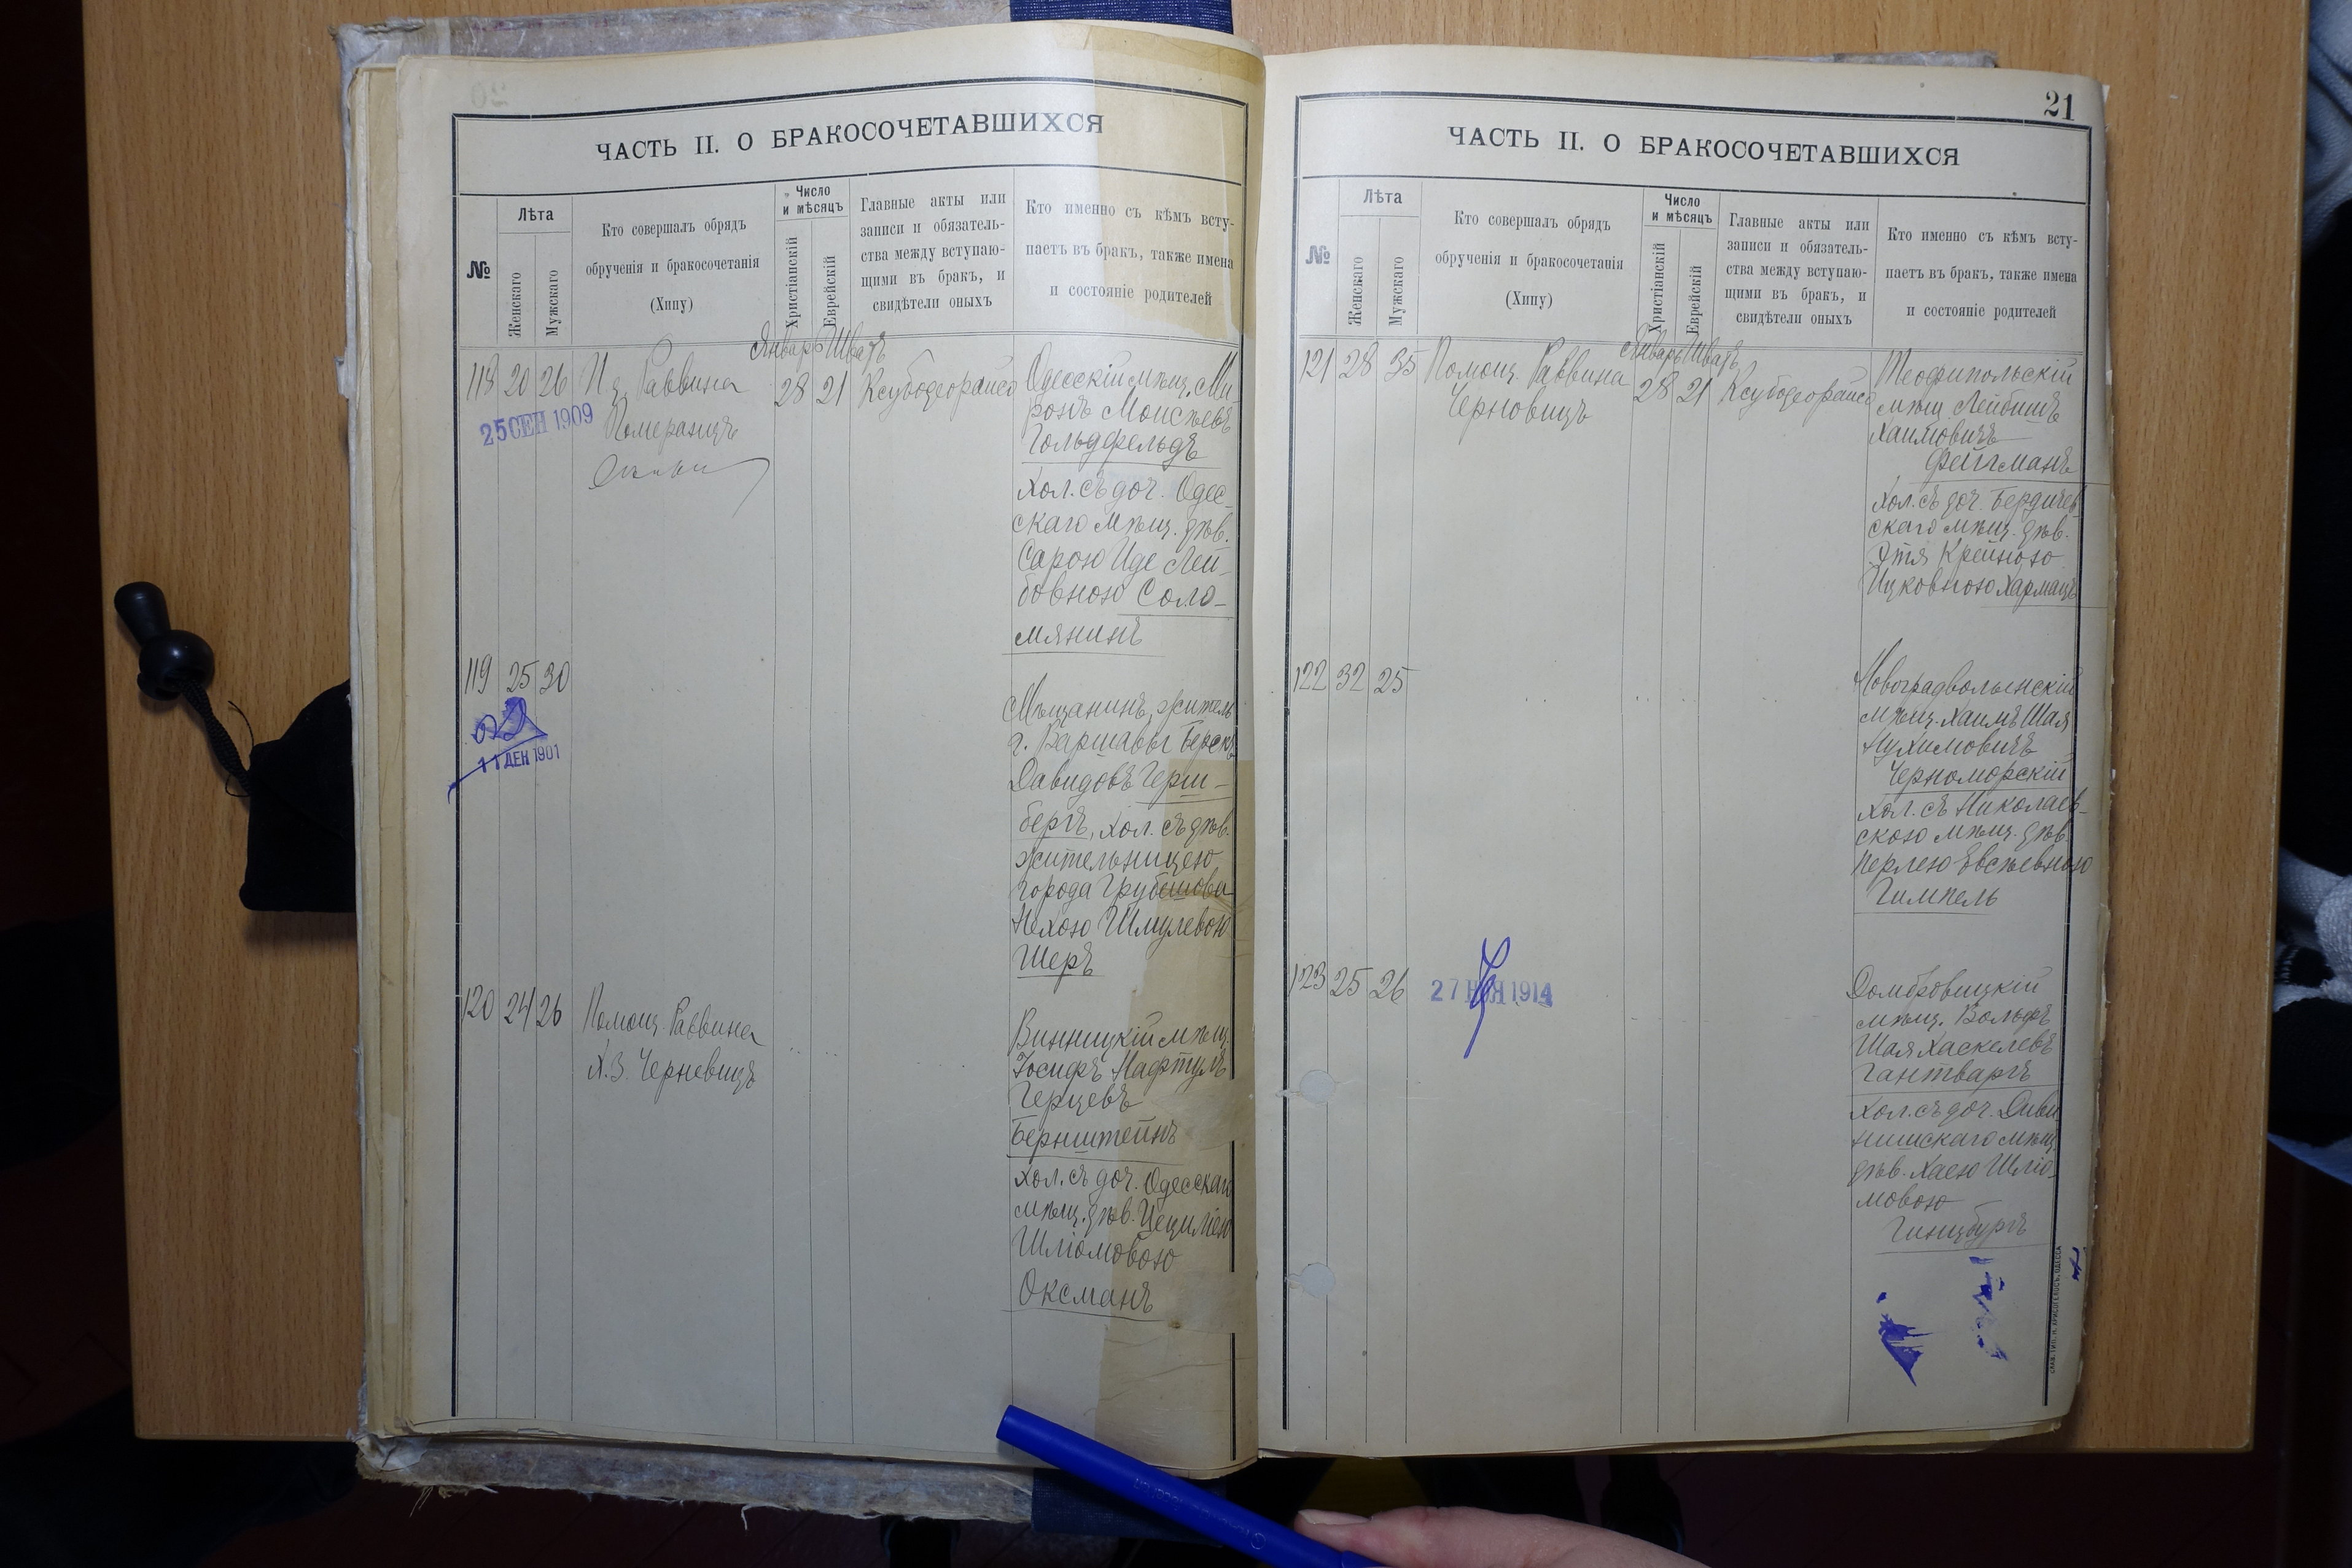 ЧАСТЬ II. О БРАКОСОЧЕТАВШИХСЯ
№
Лѣта
Женскаго
Мужскаго
Кто совершалъ обрядъ
обрученія и бракосочетанія
(Хипу)
Число
и мѣсяцъ
Христіанскій
Еврейскій
Главные акты или
записи и обязатель-
ства между вступаю-
щими въ бракъ, и
свидѣтели оныхъ
Кто именно съ кѣмъ всту-
паетъ въ бракъ, также имена
и состояніе родителей
Январь Шватъ
118 20 26
25 СЕН 1909
Раввина
Померанцъ
28 21
Одесскій мѣщ. Ми-
ронъ Моисѣевъ
Гольдфельдъ
хол. съ доч. Одес-
скаго мѣщ. дѣв.
Сарою Иде Лей-
бовною Соло-
мянинъ
119 25 30
11 ДЕК 1901
Мѣщанинъ, житель
г. Варшавы Берекъ
Давидовъ Герш-
бергъ, хол. съ дѣв.
жительницею
города Грубешова
Нехою Шмулевою
Шеръ
120 24 26
Помощ. Раввина
Х.З. Черневицъ
Винницкій мѣщ.
Іосифъ Нафтулъ
Герцевъ
Бернштейнъ
хол. съ доч. Одесскаго
мѣщ. дѣв. Цециліею
Шліомовою
Оксманъ
21
ЧАСТЬ II. О БРАКОСОЧЕТАВШИХСЯ
№
Лѣта
Женскаго
Мужскаго
Кто совершалъ обрядъ
обрученія и бракосочетанія
(Хипу)
Число
и мѣсяцъ
Христіанскій
Еврейскій
Главные акты или
записи и обязатель-
ства между вступаю-
щими въ бракъ, и
свидѣтели оныхъ
Кто именно съ кѣмъ всту-
паетъ въ бракъ, также имена
и состояніе родителей
Январь Шватъ
121 28 35
Помощ. Раввина
Черновицъ
28 21
Теофипольскій
мѣщ. Лейбишъ
Хаимовичъ
Фейгманъ
хол. съ доч. Бердичев
скаго мѣщ. дѣв.
Этя Крейною
Ицковною Хармацъ
122 32 25
Новоградволынскій
мѣщ. Хаимъ Шая
Нухимовичъ
Черноморскій
хол. съ Николаев-
скою мѣщ. дѣв.
Перлею Евсѣевною
Гимпель
123 25 26
27 1914
Домбровицкій
мѣщ. Вольфъ
Шая Хаскелевъ
Гантваргъ
хол. съ доч. Диви
нишскаго мѣщ.
дѣв. Хаею Шліо-
мовою
Гинцбургъ